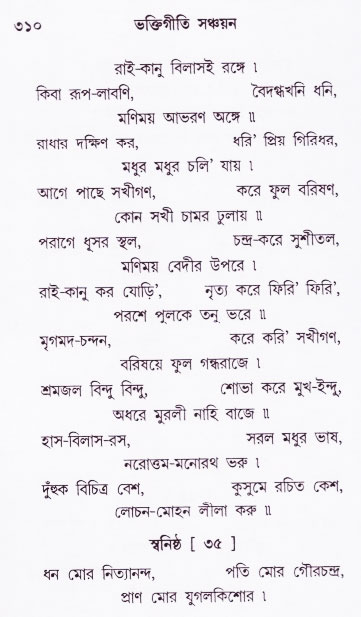 ৩১০ ভক্তিগীতি সঞ্চয়ন
রাই-কানু বিলাসই রঙ্গে ৷
কিবা রূপ-লাবণি, বৈদগ্ধখনি ধনি,
মণিময় আভরণ অঙ্গে ॥
রাধার দক্ষিণ কর, ধরি’ প্রিয় গিরিধর,
মধুর মধুর চলি’ যায় ৷
আগে পাছে সখীগণ, করে ফুল বরিষণ,
কোন সখী চামর ঢুলায় ॥
পরাগে ধূসর স্থল, চন্দ্র-করে সুশীতল,
মণিময় বেদীর উপরে ৷
রাই-কানু কর যোড়ি’, নৃত্য করে ফিরি’ ফিরি’,
পরশে পুলকে তনু ভরে ॥
মৃগমদ-চন্দন, করে করি’ সখীগণ,
বরিষয়ে ফুল গন্ধরাজে ৷
শ্রমজল বিন্দু বিন্দু, শোভা করে মুখ-ইন্দু,
অধরে মুরলী নাহি বাজে ॥
হাস-বিলাস-রস, সরল মধুর ভাষ,
নরোত্তম-মনোরথ ভরু ৷
দুঁহুক বিচিত্র বেশ, কুসুমে রচিত কেশ,
লোচন-মোহন লীলা করু ॥
স্বনিষ্ঠ [ ৩৫ ]
ধন মোর নিত্যানন্দ, পতি মোর গৌরচন্দ্র,
প্রাণ মোর যুগলকিশোর ৷